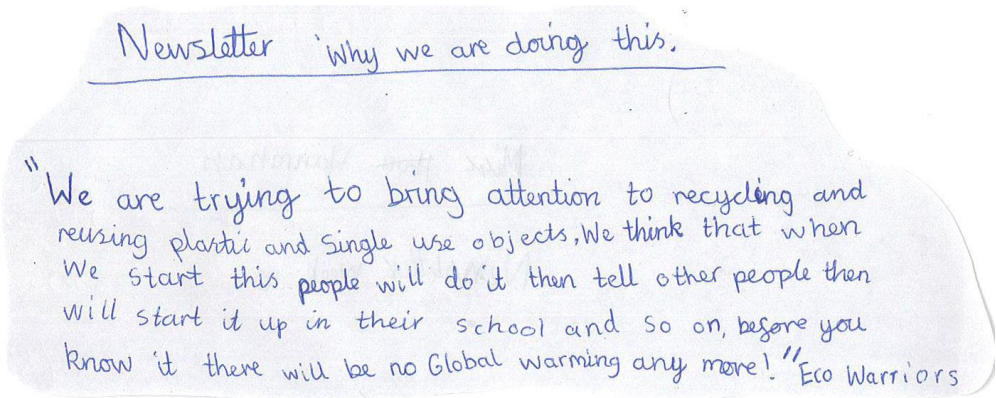 Newsletter 'Why we are doing this.
"We are trying to bring attention to recycling and
reusing plastic and single use objects, We think that when
We start this people will do it then tell other people then
will start it up in their school and so on, before you
know it there will be no Global warming any more!" Eco Warriors